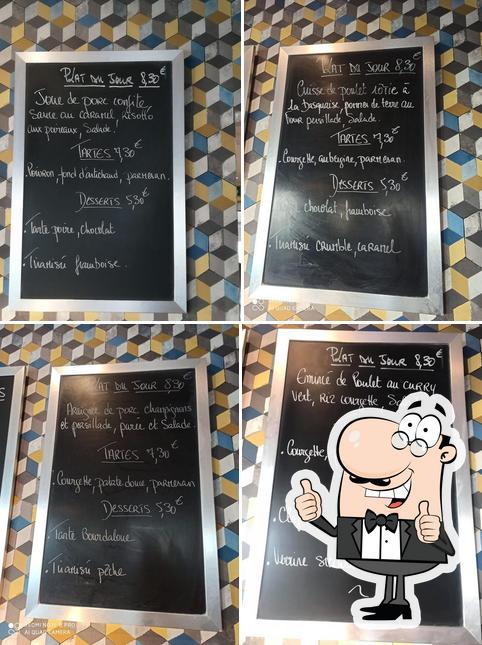 Plat du Jour 8,30€
Joue de porc confite
sauce au caramel, risotto
aux poireaux, Salade.
Tartes 7,30€
. Poivron, fond d'artichaud, parmesan.
Desserts 5,30€
. Tarte poire, chocolat
. Tiramisu framboise.
Plat du Jour 8,30€
Cuisse de poulet rôtie à
la Basquaise, pommes de terre au
four persillade, Salade.
Tartes 7,30€
. Courgette, aubergine, parmesan.
Desserts 5,30€
chocolat, framboise
. Tiramisu crumble, caramel
AI QUAD CAMERA
Plat du Jour 8,30€
Araignée de porc, champignons
et persillade, purée et Salade.
Tartes 7,30€
. Courgette, patate douce, parmesan
Desserts 5,30€
. Tarte Bourdaloue
. Tiramisu pêche
REDMI NOTE 8 PRO
AI QUAD CAMERA
Plat du Jour 8,30€
Emincé de Poulet au curry
vert, riz courgette,
. Courgette,